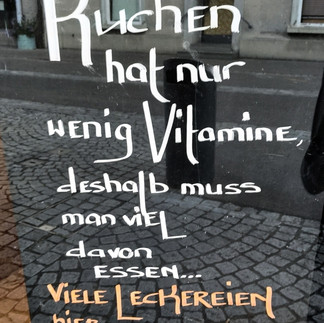 Kuchen
hat nur
wenig Vitamine,
deshalb muss
man viel
davon
ESSEN...
VIELE LECKEREIEN
hier